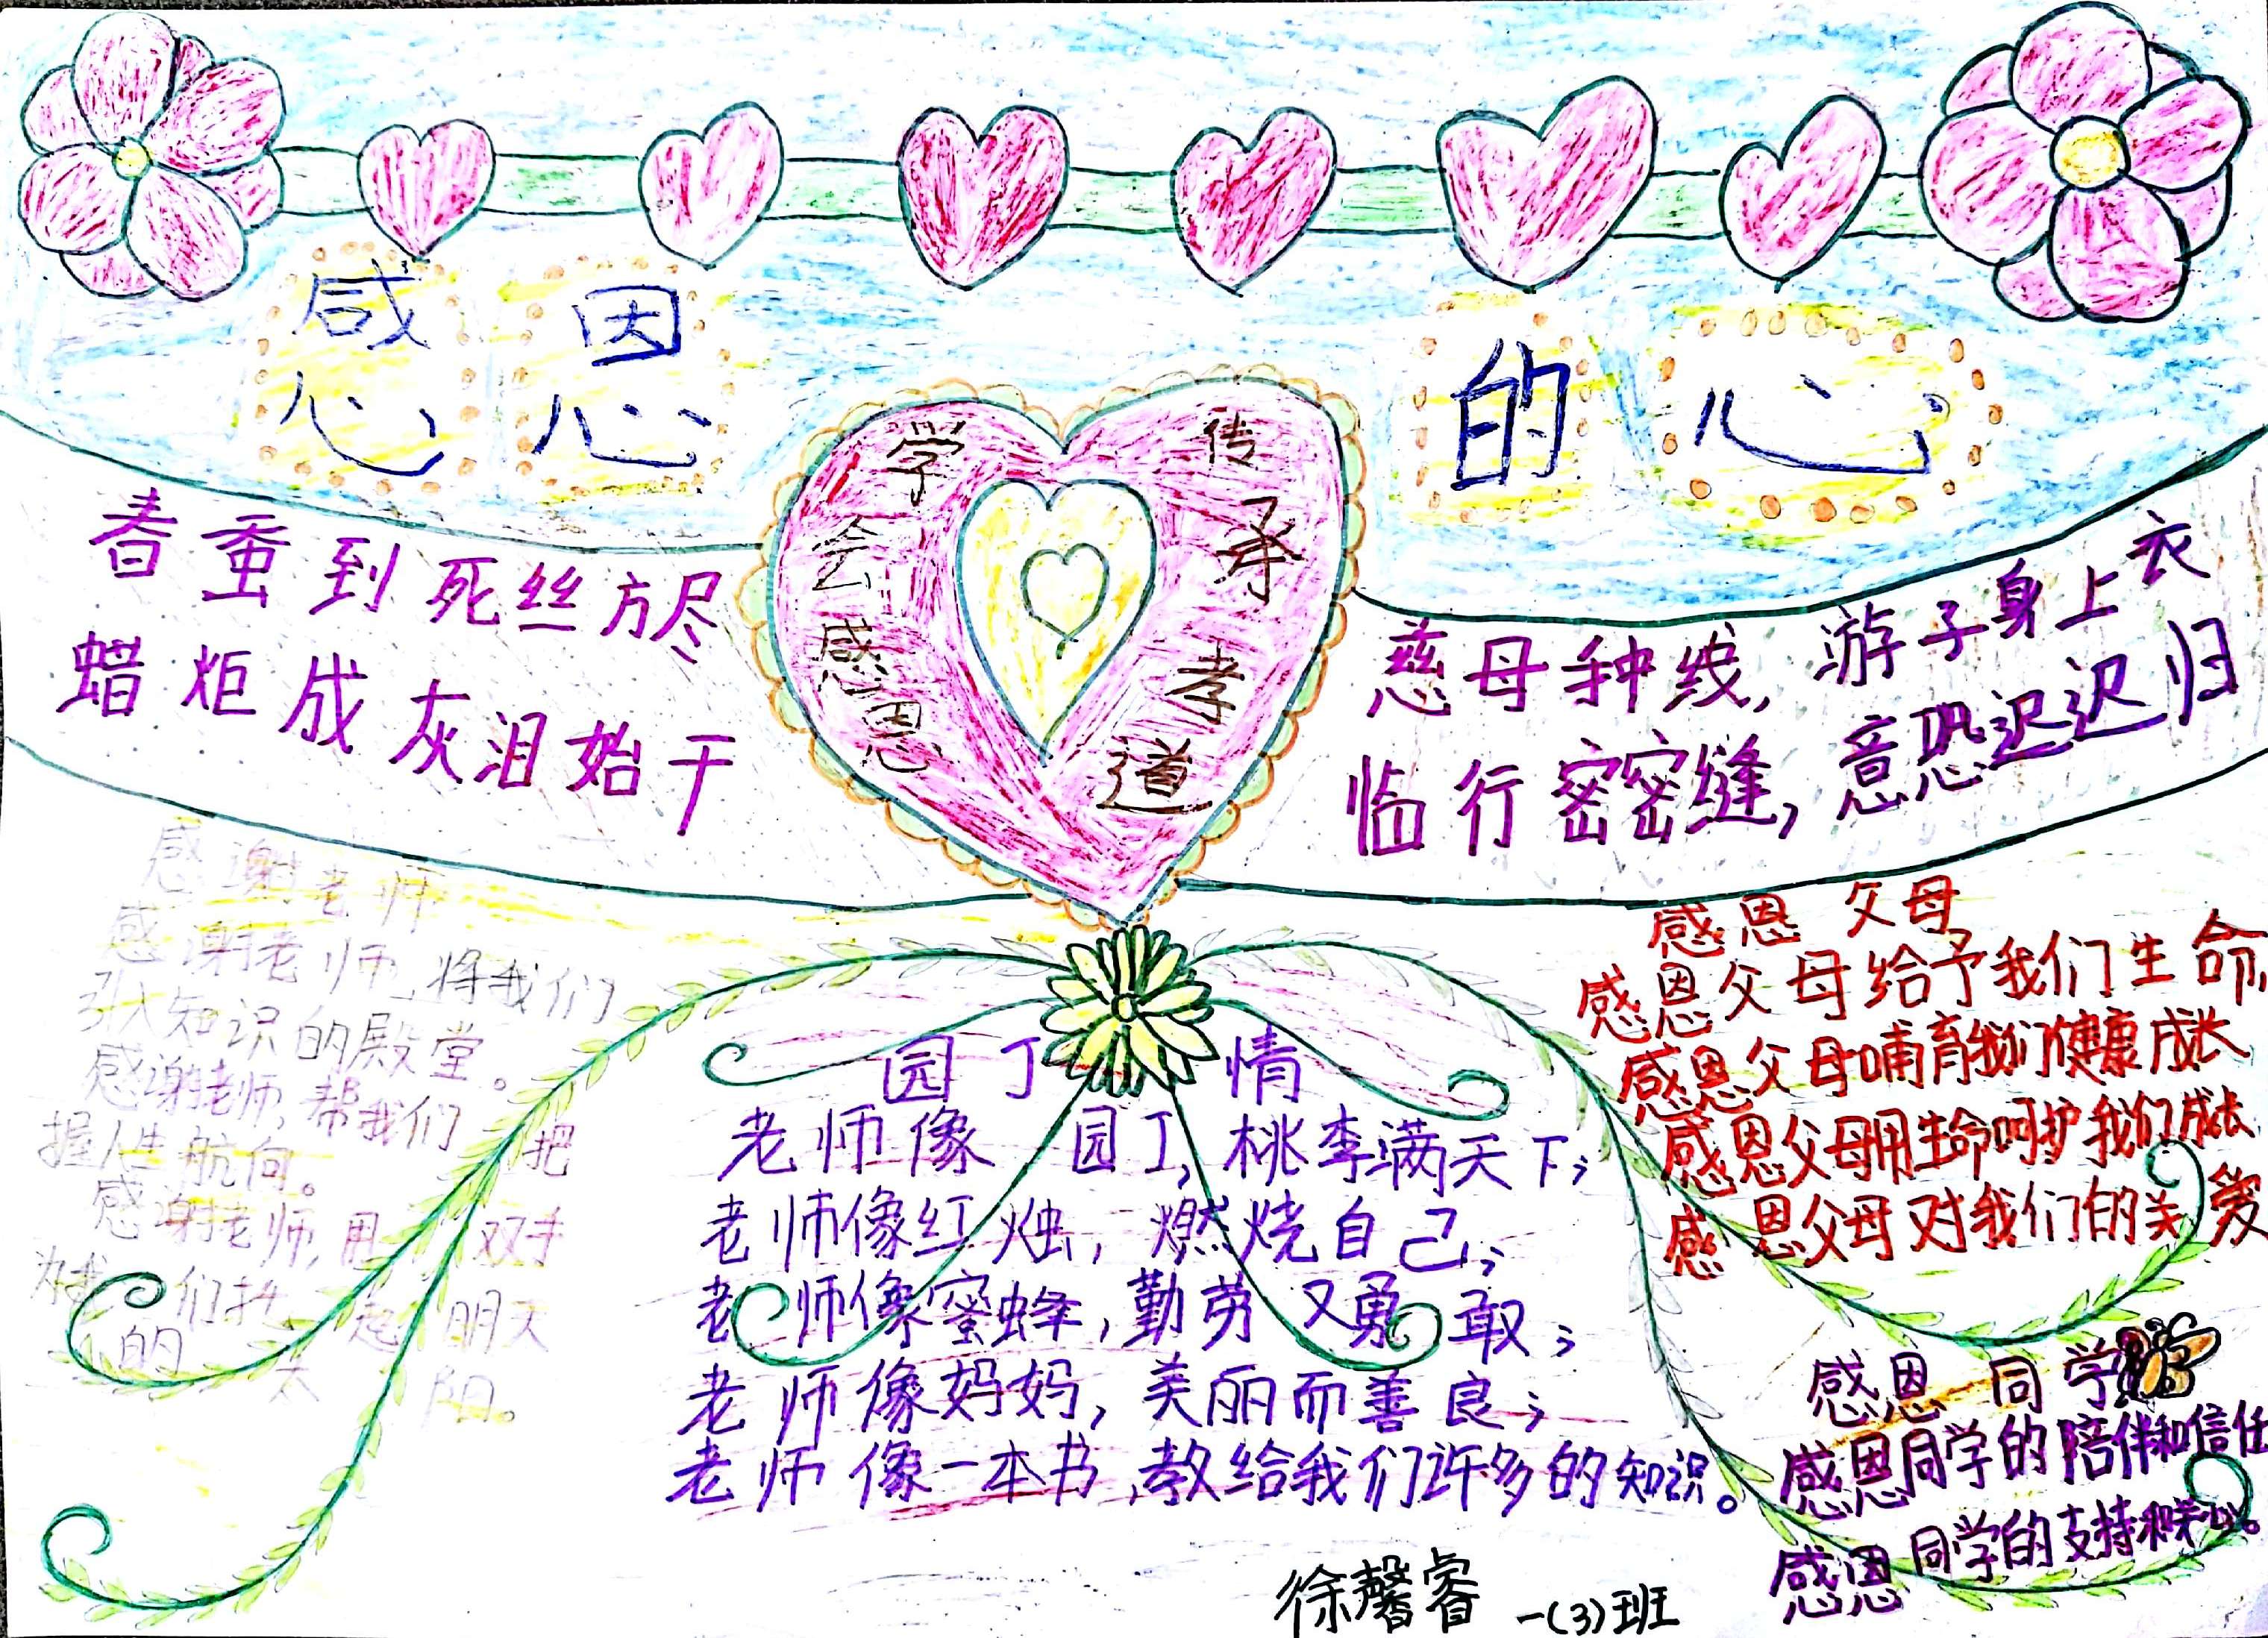 感恩的心
学会感恩
传承孝道
春蚕到死丝方尽
蜡炬成灰泪始干
慈母种线，游子身上衣
临行密密缝，意恐迟迟归
感谢老师
感谢老师，将我们
引入知识的殿堂。
感谢老师，帮我们把
握人生航向。
感谢老师，用双手
为我们托起明天
的太阳。
园丁情
老师像园丁，桃李满天下；
老师像红烛，燃烧自己；
老师像蜜蜂，勤劳又勇敢；
老师像妈妈，美丽而善良；
老师像一本书，教给我们许多的知识。
感恩父母
感恩父母给予我们生命
感恩父母哺育我们健康成长
感恩父母用生命呵护我们成长
感恩父母对我们的关爱
感恩同学
感恩同学的陪伴和信任
感恩同学的支持和关心。
徐馨睿 一(3)班